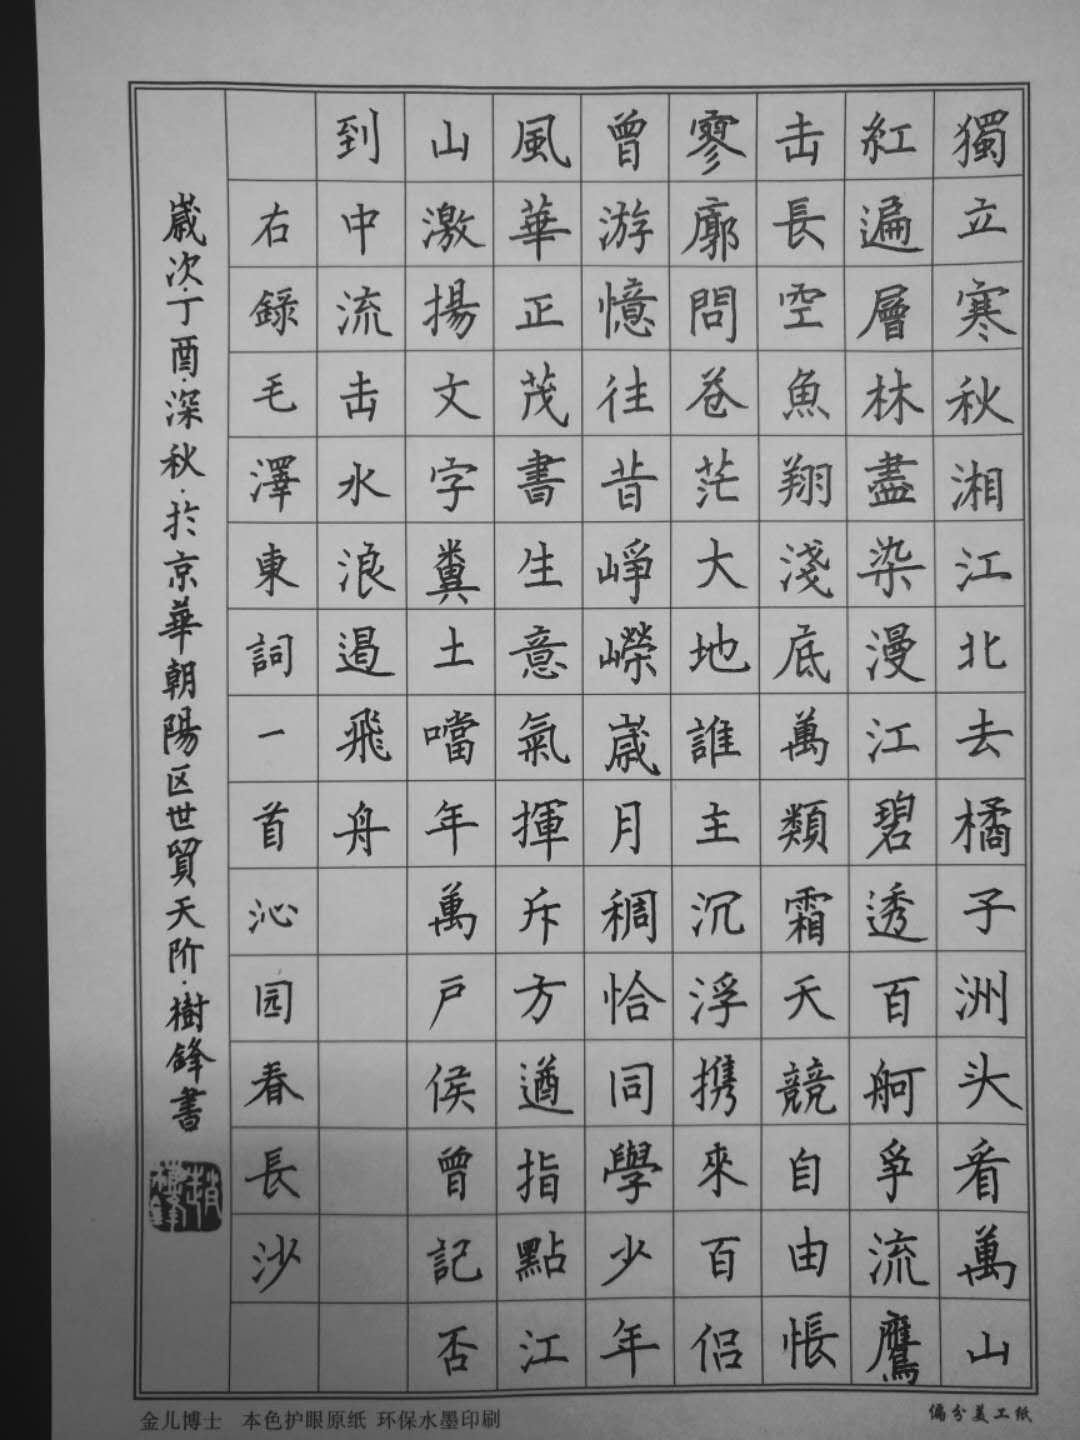 獨立寒秋湘江北去橘子洲头看萬山
紅遍層林盡染漫江碧透百舸爭流鷹
击長空魚翔淺底萬類霜天競自由悵
寥廓問苍茫大地誰主沉浮携來百侣
曾游憶往昔崢嶸崴月稠恰同學少年
風華正茂書生意氣揮斥方遒指點江
山激揚文字糞土噹年萬戶侯曾記否
到中流击水浪遏飛舟
右錄毛澤東詞一首沁园春長沙
嵗次丁酉深秋於京華朝陽区世貿天阶樹鋒書
趙樹鋒
金儿博士 本色护眼原纸 环保水墨印刷
偏分美工纸